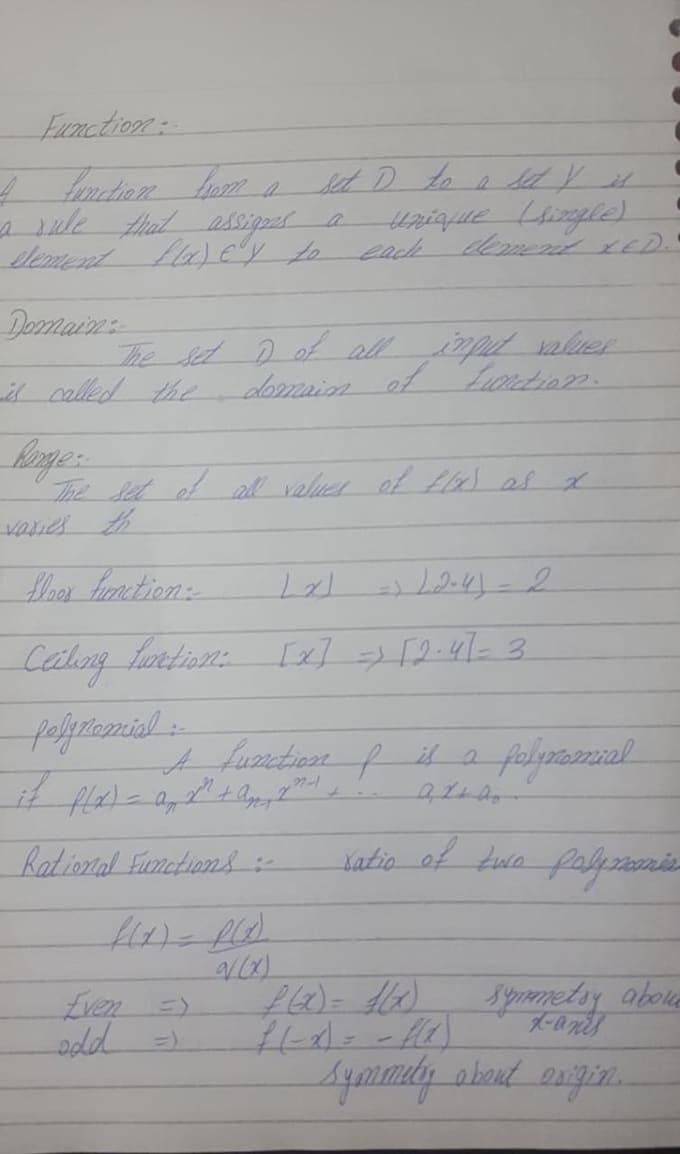 Function:-
A function from a set D to a set Y is
a rule that assigns a unique (single)
element f(x) ∈ Y to each element x ∈ D.
Domain:-
The set D of all input values
is called the domain of function.
Range:-
The set of all values of f(x) as x
varies th
floor function:- ⌊x⌋ => ⌊2.4⌋ = 2
Ceiling function: ⌈x⌉ => ⌈2.4⌉ = 3
polynomial :-
A function P is a polynomial
if P(x) = aₙxⁿ + aₙ₋₁xⁿ⁻¹ + ... a₁x + a₀.
Rational Functions :- ratio of two polynomia
f(x) = p(x)/q(x)
Even => f(x) = f(x) symmetry abou
x-axis
odd => f(-x) = -f(x)
symmetry about origin.